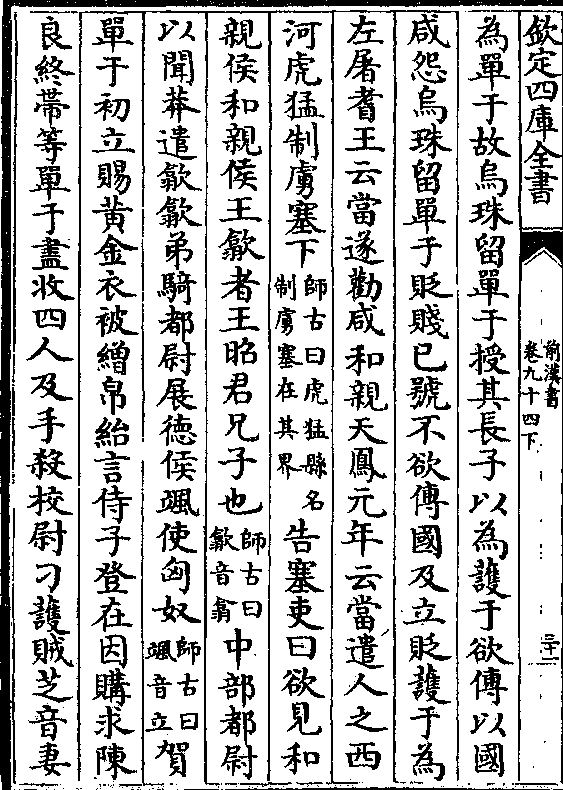 欽定四庫全書
前漢書
卷九十四下
三十一
為單于故烏珠留單于授其長子以為護于欲傳以國
咸怨烏珠留單于貶賤已號不欲傳國及立貶護于為
左屠耆王云當遂勸咸和親天鳳元年云當遣人之西
河虎猛制虜塞下師古曰虎猛縣名制虜塞在其界告塞吏曰欲見和
親侯和親侯王歙者王昭君兄子也師古曰歙音翕中部都尉
以聞莽遣歙歙弟騎都尉展德侯颯使匈奴師古曰颯音立賀
單于初立賜黃金衣被繒帛紿言侍子登在因購求陳
良終帶等單于盡收四人及手殺校尉刁護賊芝音妻